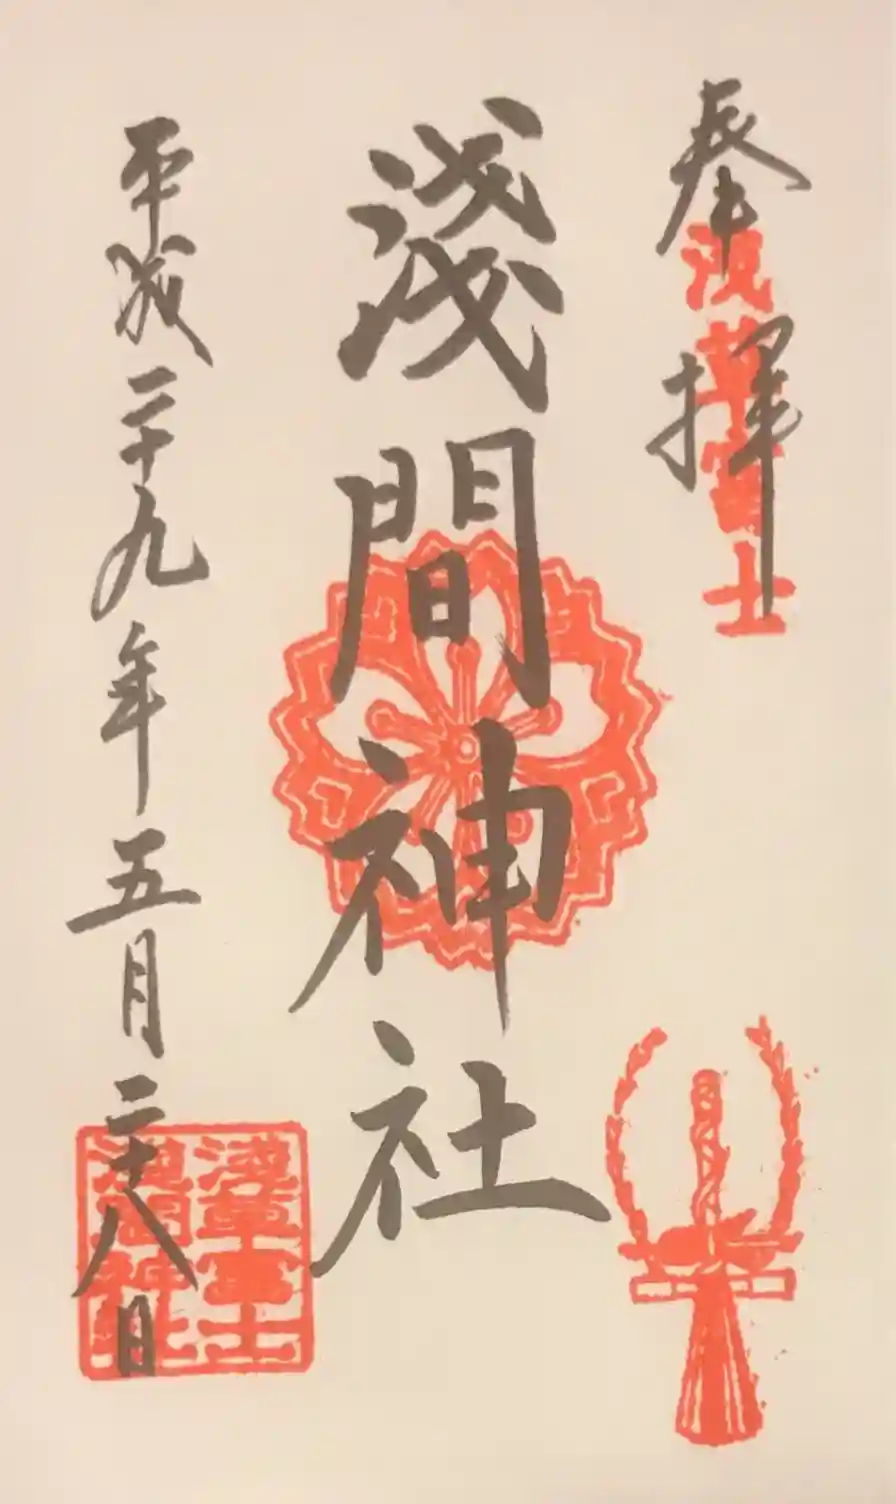 奉拝
浅草富士
淺間神社
平成二十九年五月二十八日
淺草富士
淺間神社